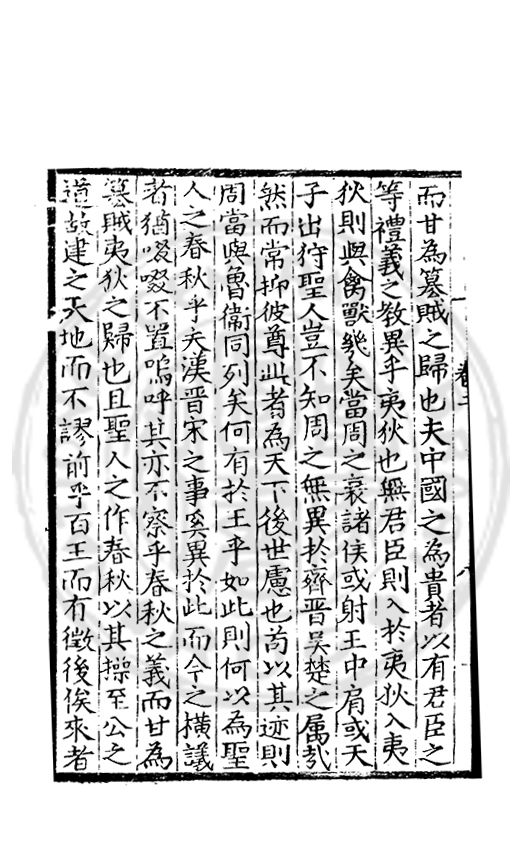 而甘為篡賊之歸也夫中國之為貴者以有君臣之
等禮義之敎異乎夷狄也無君臣則入於夷狄入夷
狄則與禽獸幾矣當周之衰諸侯或射王中肩或天
子出狩聖人豈不知周之無異於齊晉吳楚之属㢤
然而常抑彼尊此者為天下後世慮也苟以其迹則
周當與魯衞同列矣何有於王乎如此則何以為聖
人之春秋乎夫漢晉宋之事奚異於此而今之橫議
者猶啜啜不置嗚呼其亦不察乎春秋之義而甘為
篡賊夷狄之歸也且聖人之作春秋以其操至公之
道故建之天地而不謬前乎百王而有徵後俟來者
卷二
八